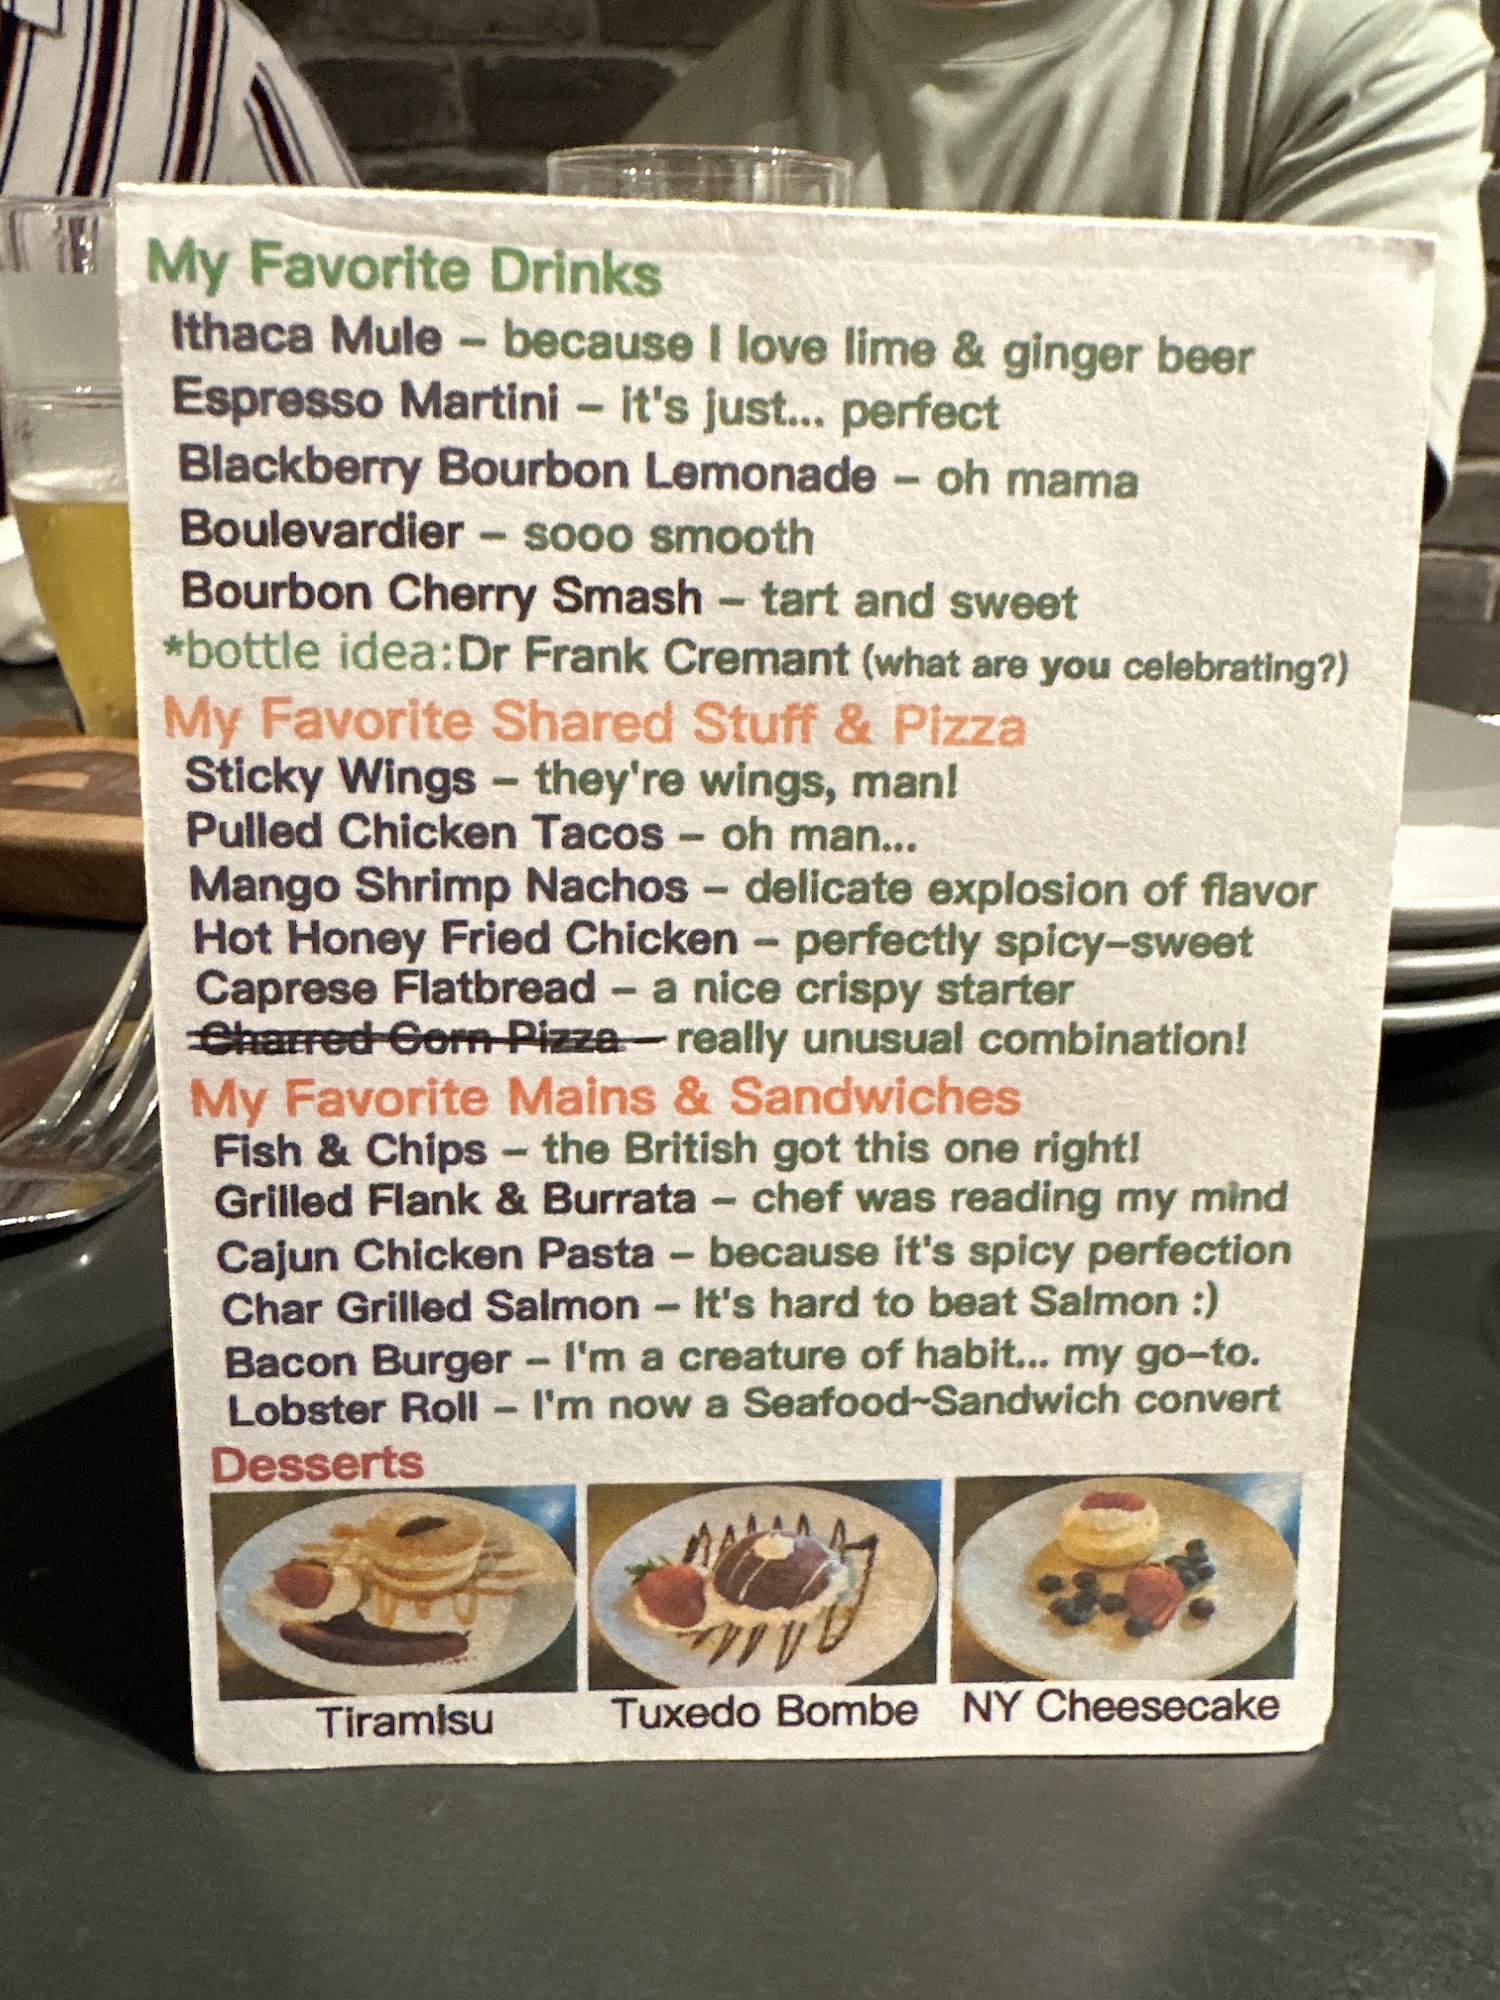 My Favorite Drinks
Ithaca Mule – because I love lime & ginger beer
Espresso Martini – it's just... perfect
Blackberry Bourbon Lemonade – oh mama
Boulevardier – sooo smooth
Bourbon Cherry Smash – tart and sweet
*bottle idea:Dr Frank Cremant (what are you celebrating?)
My Favorite Shared Stuff & Pizza
Sticky Wings – they're wings, man!
Pulled Chicken Tacos – oh man...
Mango Shrimp Nachos – delicate explosion of flavor
Hot Honey Fried Chicken – perfectly spicy–sweet
Caprese Flatbread – a nice crispy starter
Charred Corn Pizza – really unusual combination!
My Favorite Mains & Sandwiches
Fish & Chips – the British got this one right!
Grilled Flank & Burrata – chef was reading my mind
Cajun Chicken Pasta – because it's spicy perfection
Char Grilled Salmon – It's hard to beat Salmon :)
Bacon Burger – I'm a creature of habit... my go–to.
Lobster Roll – I'm now a Seafood~Sandwich convert
Desserts
Tiramisu Tuxedo Bombe NY Cheesecake